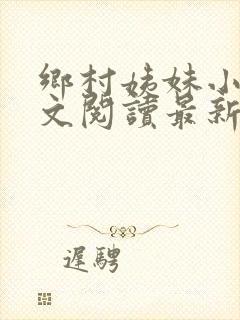 鄉村姊妹小
文閱讀最新
遲騁